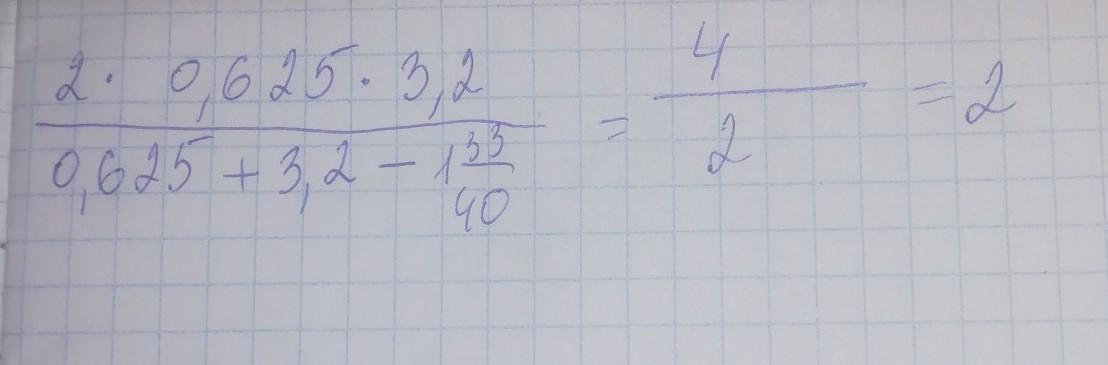 2 · 0,625 · 3,2 / 0,625 + 3,2 − 1 33/40 = 4 / 2 = 2